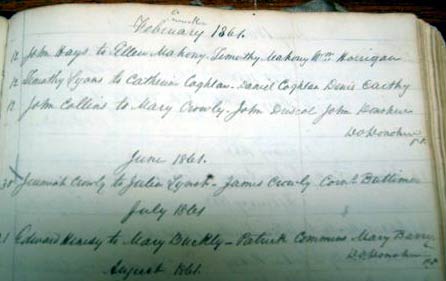 February 1861.
12 John Hays to Ellen Mahony. Timothy Mahony Wm Horrigan
12 Timothy Lyons to Catherin Coghlan. Daniel Coghlan Denis Carthy
12 John Collins to Mary Crowly. John Driscol John Donohue
D O'Donohue P.P.
June 1861.
30 Jeremiah Crowly to Julia Lynch - James Crowly Corns. Buttimer
July 1861
Edward Henesy to Mary Buckly - Patrick Commins Mary Barry
D O'Donohue P.P.
August 1861.